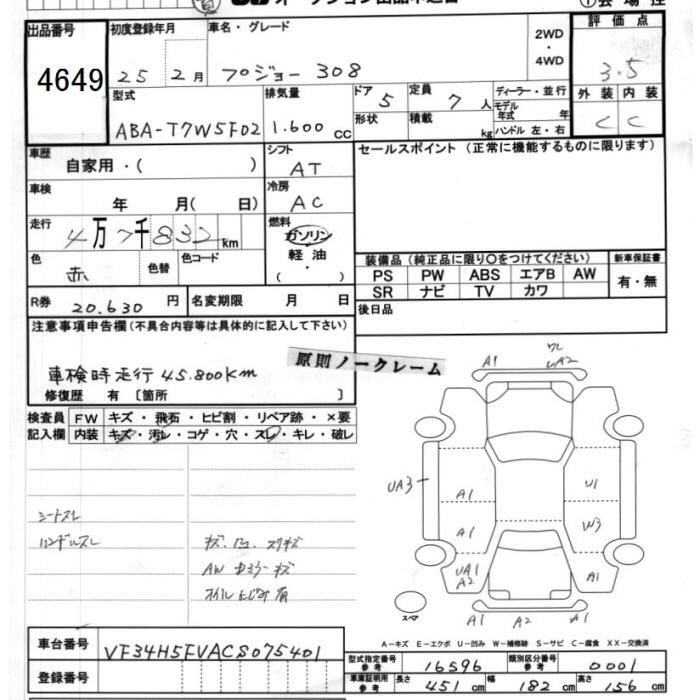 出品番号
4649
初度登録年月
25 2月
車名・グレード
プジョー 308
2WD
・
4WD
評価点
3.5
型式
ABA-T7W5F02
排気量
1.600 cc
ドア
5
形状
定員
7人
積載
kg
ディーラー・並行
モデル
年式 年
ハンドル 左・右
外装 内装
C C
車歴
自家用・( )
シフト
AT
セールスポイント (正常に機能するものに限ります)
車検
年 月( 日)
冷房
AC
走行
4万7千832km
燃料
ガソリン
軽油
・
( )
色
赤
色替
色コード
装備品 (純正品に限り○をつけてください)
新車保証書
PS PW ABS エアB AW
有・無
SR ナビ TV カワ
R券 20.630円
名変期限 月 日
後日品
注意事項申告欄(不具合内容等は具体的に記入して下さい)
車検時走行45.800Km
原則ノークレーム
修復歴 有 〔箇所 〕
検査員
記入欄
FW キズ・飛石・ヒビ割・リペア跡・×要
内装 キズ・汚レ・コゲ・穴・スレ・キレ・破レ
シートスレ
ハンドルスレ
AW
A1
UA2
UA3
A1
U1
A1
W3
UA1
A2
A1
スペア
A1
A2
A1
A-キズ E-エクボ U-凹み W-補修跡 S-サビ C-腐食 XX-交換済
車台番号
VF34H5FVACS075401
登録番号
型式指定番号
参考
16596
類別区分番号
参考
0001
車庫証明用
参考
長さ 451cm
幅 182cm
高さ 156cm